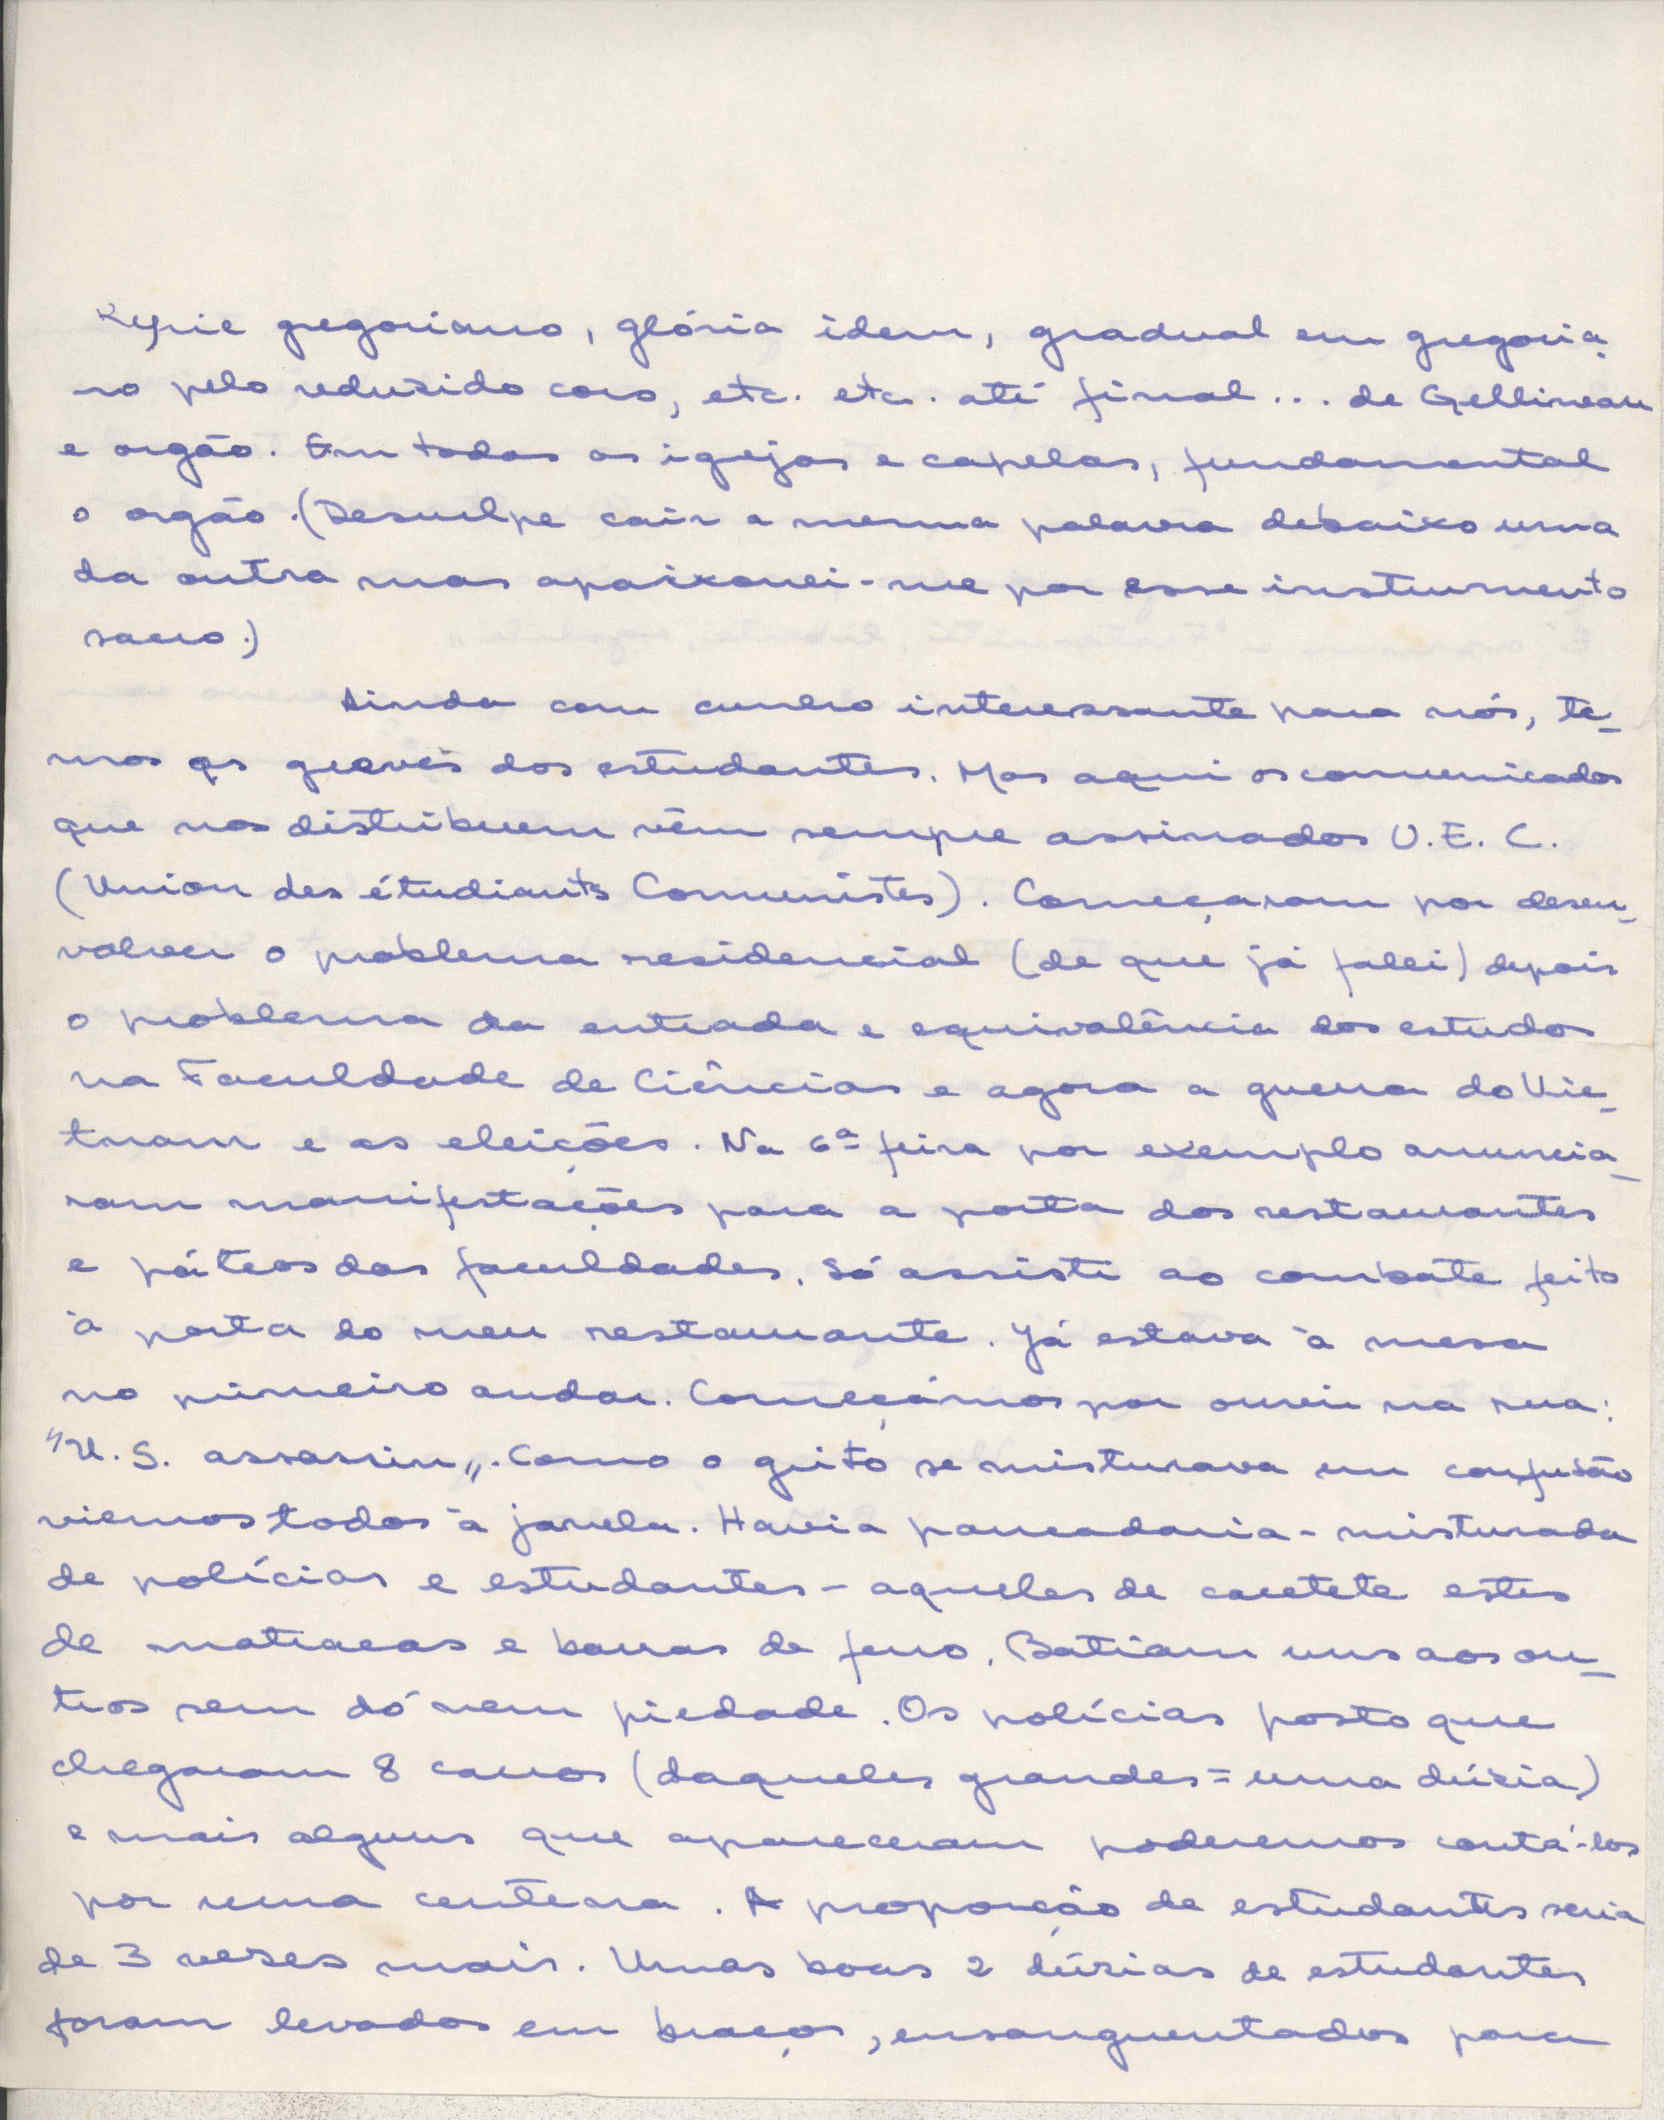 Kyrie gregoriano, glória idem, gradual em gregoria
no pelo reduzido coro, etc. etc. até final... de Gellineau
e orgão. Em todas as igrejas e capelas, fundamental
o orgão. (Desculpe cair a mesma palavra debaixo uma
da outra mas apaixonei-me por esse instrumento
sacro.)
Ainda com cunho interessante para nós, te-
mos as greves dos estudantes. Mas aqui os comunicados
que nos distribuem vêm sempre assinados U.E.C.
(Union des étudiants Comunistes). Começaram por desen-
volver o problema residencial (de que já falei) depois
o problema da entrada e equivalência dos estudos
na Faculdade de Ciências e agora a guerra do Vie-
tnam e as eleições. Na 6ª feira por exemplo anuncia-
ram manifestações para a porta dos restaurantes
e páteos das faculdades. Só assisti ao combate feito
à porta do meu restaurante. Já estava à mesa
no primeiro andar. Começámos por ouvir na rua:
"U.S. assassin". Como o grito se misturava em confusão
viemos todos à janela. Havia pancadaria - misturada
de polícias e estudantes - aqueles de cacetete estes
de matracas e barras de ferro. Batiam uns aos ou-
tros sem dó nem piedade. Os polícias posto que
chegaram 8 carros (daqueles grandes = uma dúzia)
e mais alguns que apareceram poderemos contá-los
por uma centena. A proporção de estudantes seria
de 3 vezes mais. Umas boas 2 dúzias de estudantes
foram levados em braços, ensanguentados para